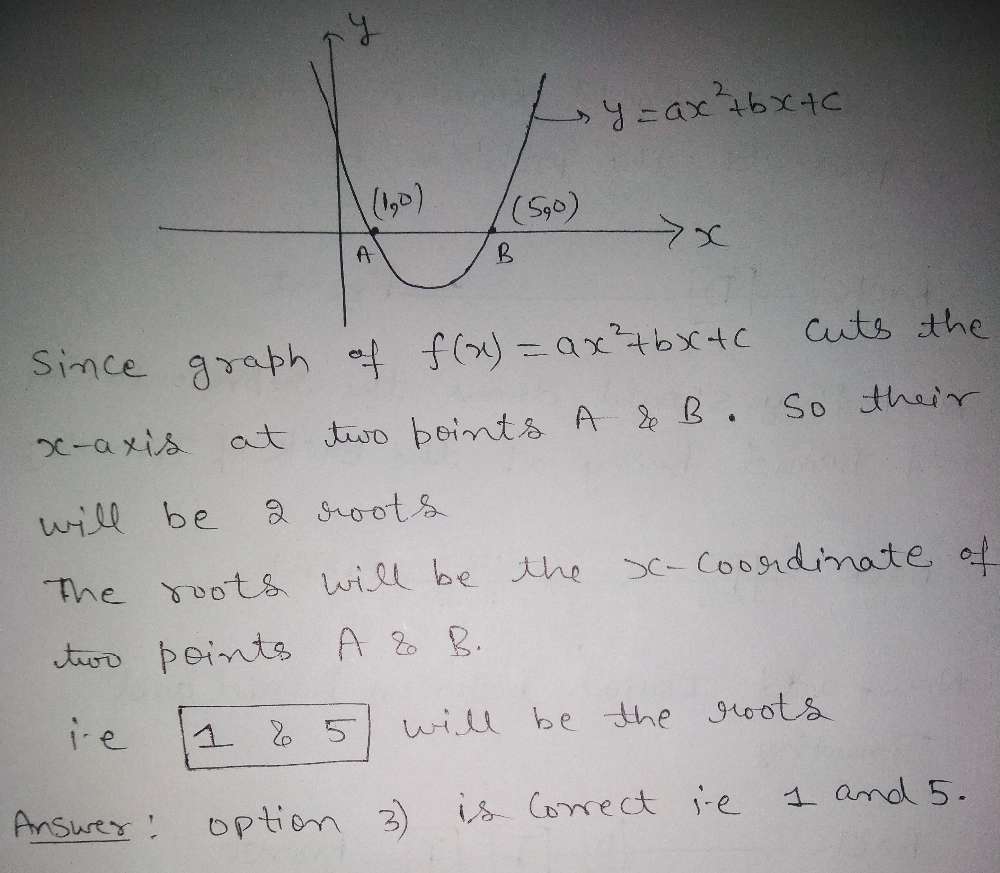 y
y = ax²+bx+c
(1,0)
(5,0)
x
A
B
Since graph of f(x) = ax²+bx+c cuts the
x-axis at two points A & B. So their
will be 2 roots
The roots will be the x-coordinate of
two points A & B.
i.e 1 & 5 will be the roots
Answer: option 3) is Correct i.e 1 and 5.